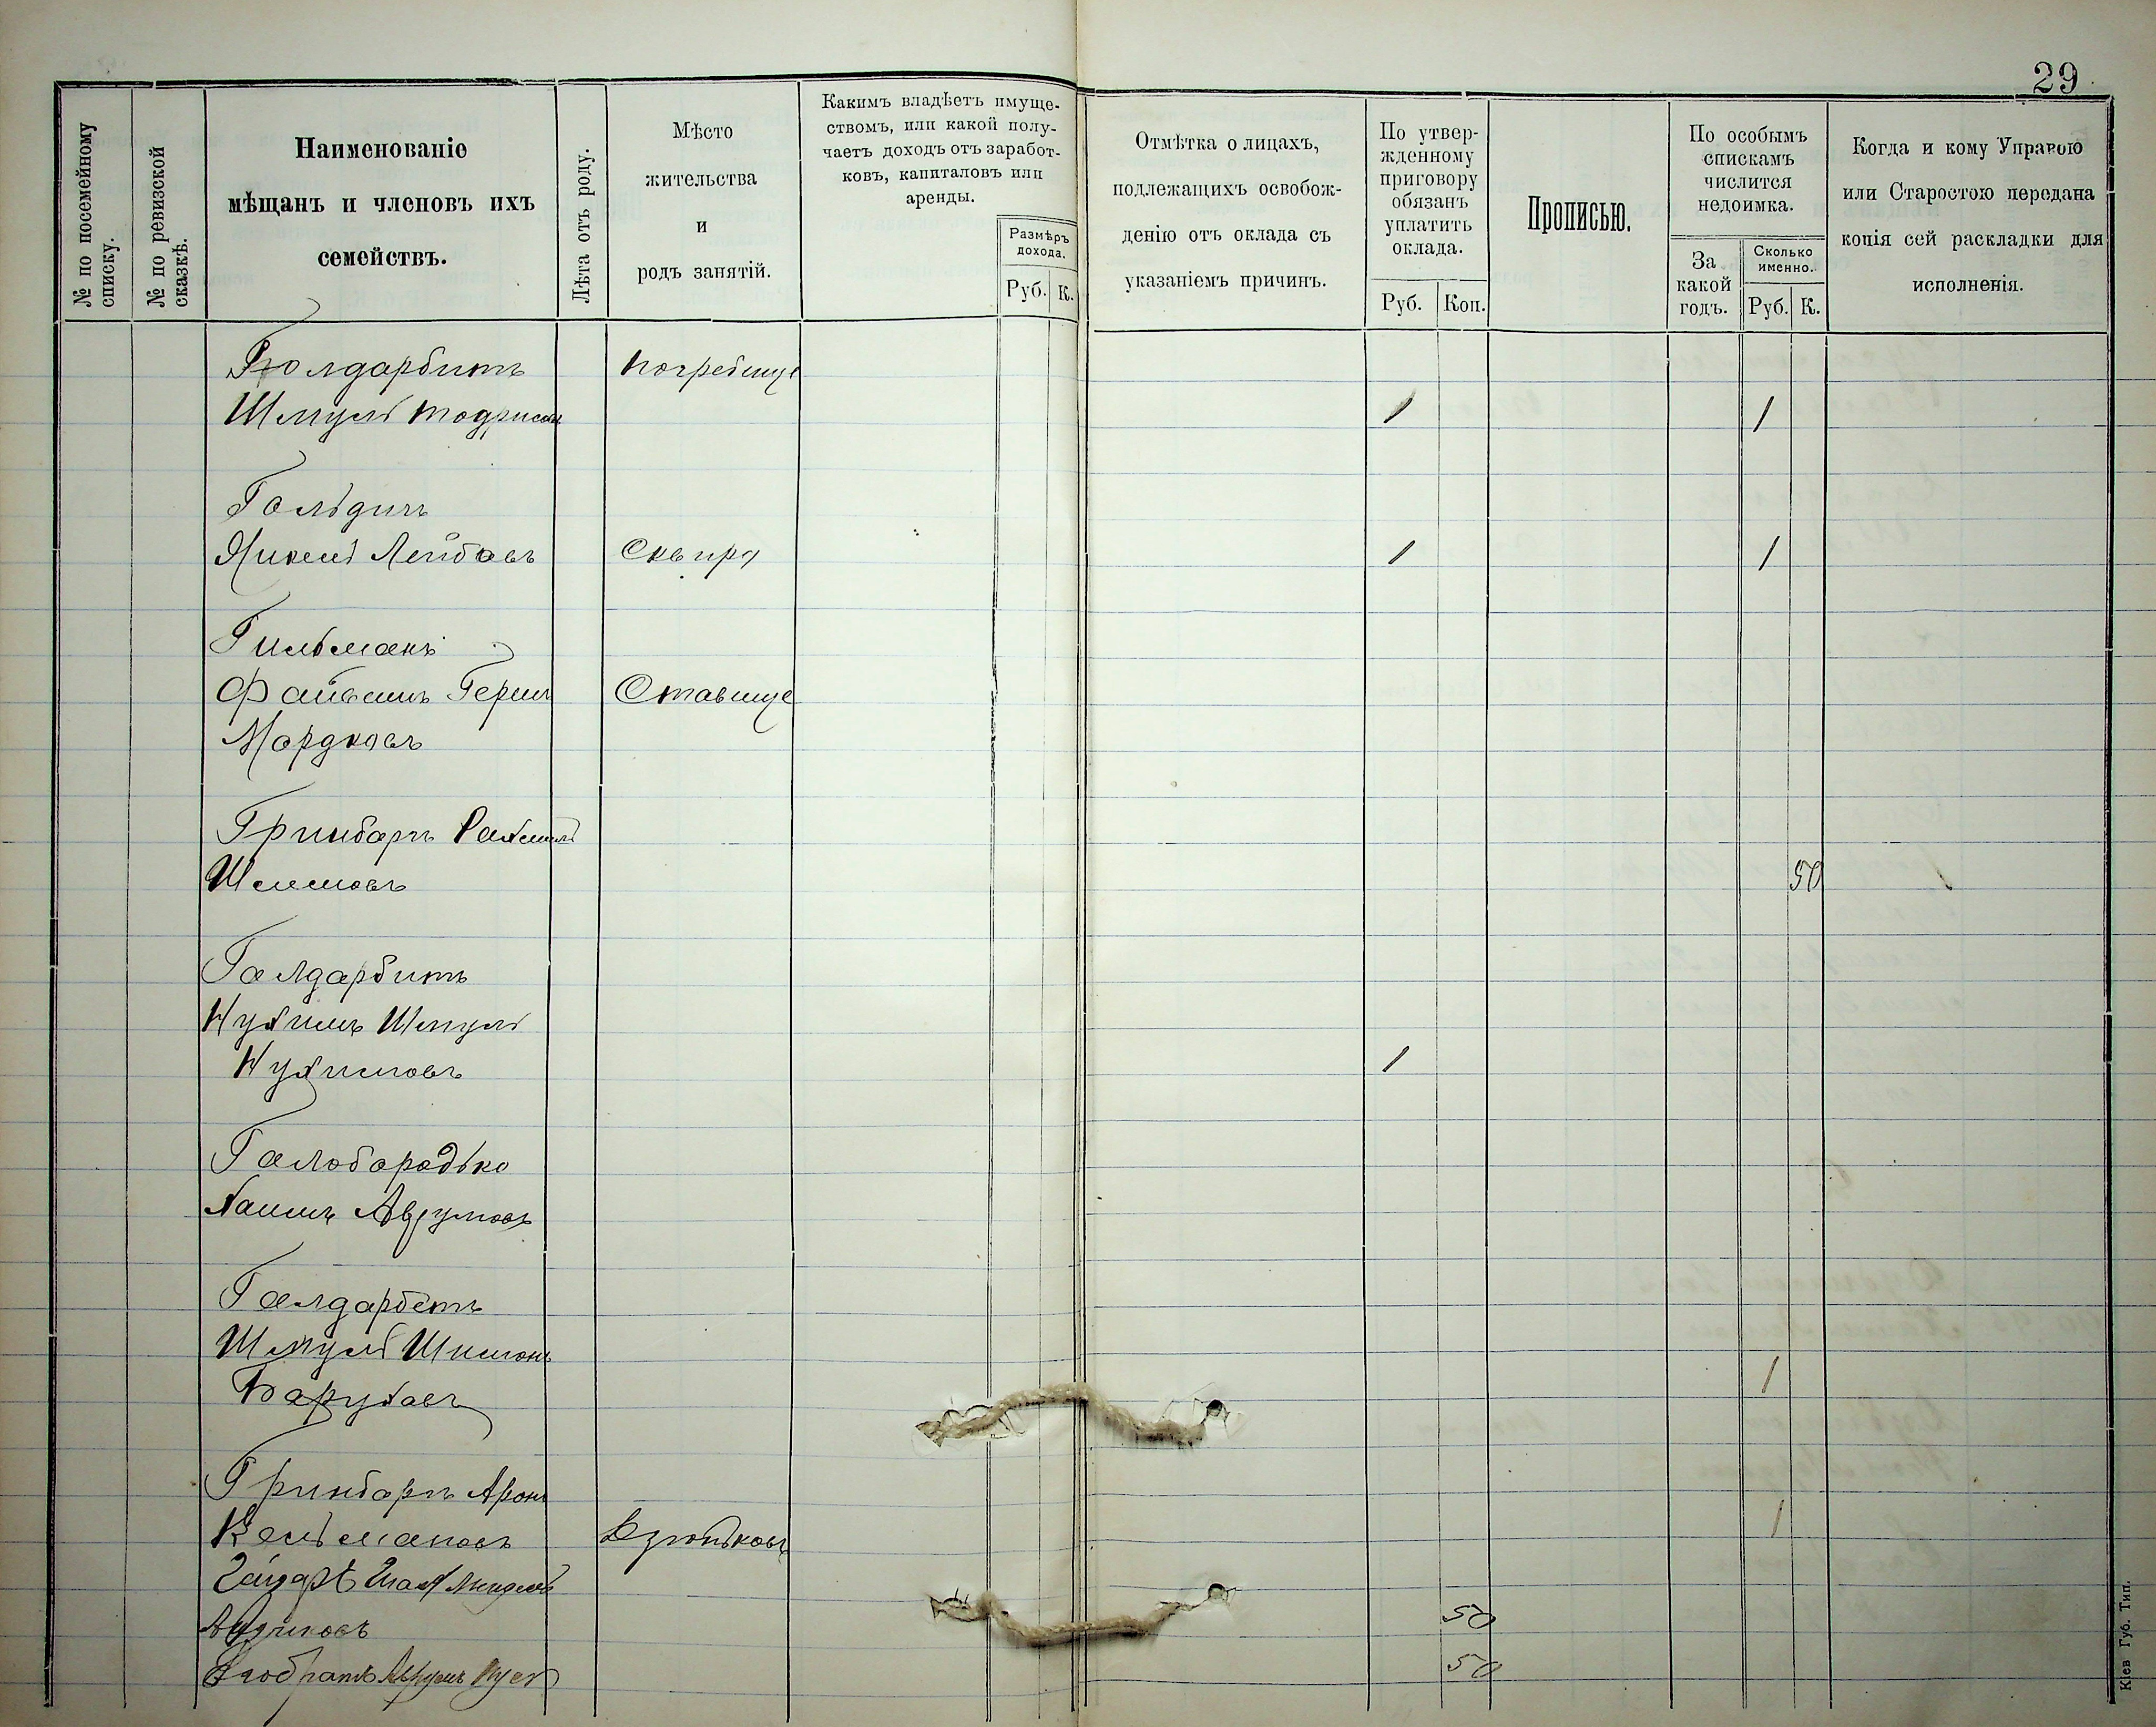 29
№ по посемейному списку.
№ по ревизской сказкѣ.
Наименованіе
мѣщанъ и членовъ ихъ
семействъ.
Лѣта отъ роду.
Мѣсто
жительства
и
родъ занятій.
Какимъ владѣетъ имуще-
ствомъ, или какой полу-
чаетъ доходъ отъ заработ-
ковъ, капиталовъ или
аренды.
Размѣръ
дохода.
Руб. К.
Отмѣтка о лицахъ,
подлежащихъ освобож-
денію отъ оклада съ
указаніемъ причинъ.
По утвер-
жденному
приговору
обязанъ
уплатить
оклада.
Руб. Коп.
Прописью.
По особымъ
спискамъ
числится
недоимка.
За
какой
годъ.
Сколько
именно.
Руб. К.
Когда и кому Управою
или Старостою передана
копія сей раскладки для
исполненія.
Голдарбитъ Погребище
Шмуль 1 1
Гольдич
Лейбовъ Сквира 1 1
Гильманъ
Файвишъ Герш Ставище
Мордковъ
Гринбаргъ Рахмиль
Шлемовъ 50
Галдарбитъ
Нухимъ Шмуль
Нухимовъ 1
Галобородько
Хаимъ Аврумовъ
Галдарбетъ
Шмуль Шимонъ
Барухавъ 1
Гринбаргъ Аронъ
Кельмановъ 1
50
Аврумъ 50
Кіев Губ. Тип.